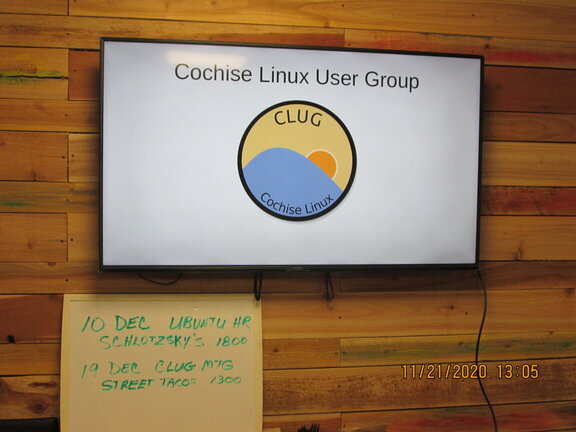 Cochise Linux User Group
CLUG
Cochise Linux
10 DEC UBUNTU HR
SCHLOTZSKY'S 1800
19 DEC CLUG MTG
STREET TACOS 1300
11/21/2020 13:05